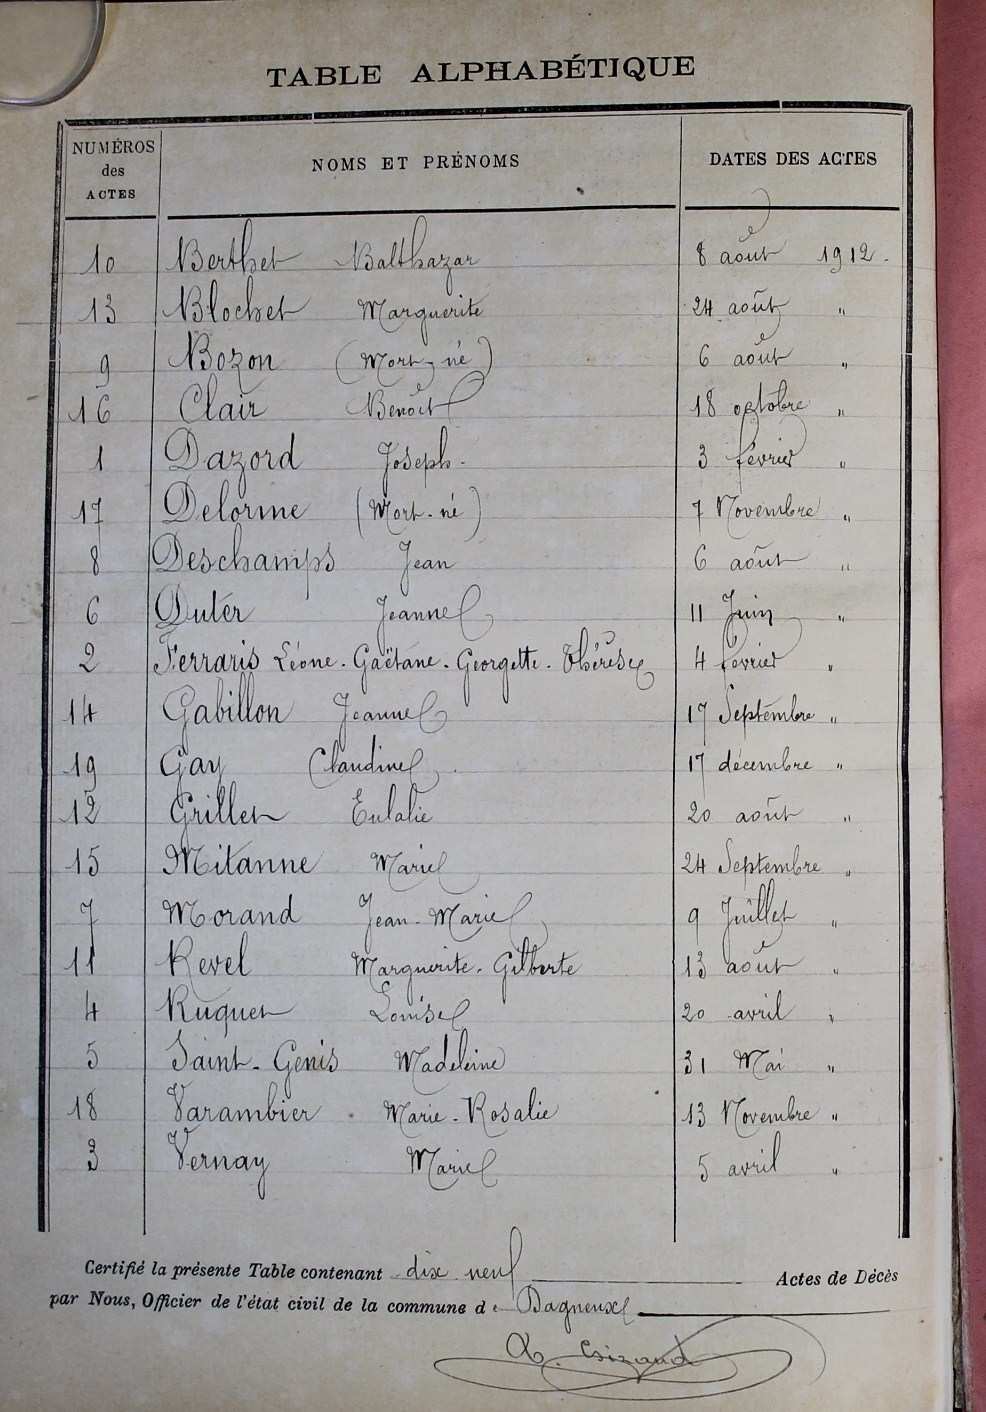 TABLE ALPHABÉTIQUE
NUMÉROS des ACTES NOMS ET PRÉNOMS DATES DES ACTES
10 Berthet Balthazar 8 août 1912.
13 Blochet Marguerite 24 août "
9 Bozon (Mort-né) 6 août "
16 Clair Benoît 18 octobre "
1 Dazord Joseph. 3 février "
17 Delorme (Mort-né) 7 Novembre "
8 Deschamps Jean 6 août "
6 Duter Jeanne 11 Juin "
2 Ferraris Léone-Gaëtane-Georgette-Thérèse 4 février "
14 Gabillon Jeanne 17 Septembre "
19 Gay Claudine 17 décembre "
12 Grillet Eulalie 20 août "
15 Mitanne Marie 24 Septembre "
7 Morand Jean-Marie 9 Juillet "
11 Revel Marguerite-Gilberte 13 août "
4 Ruguet Louise 20 avril "
5 Saint-Genis Madeleine 31 Mai "
18 Varambier Marie-Rosalie 13 Novembre "
3 Vernay Marie 5 avril "
Certifié la présente Table contenant dix neuf Actes de Décès
par Nous, Officier de l'état civil de la commune de Dagneux